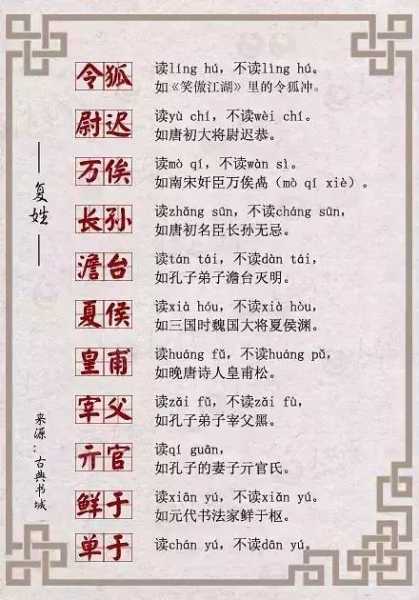 复姓
令狐
读líng hú，不读lìng hú。
如《笑傲江湖》里的令狐冲。
尉迟
读yù chí，不读wèi chí。
如唐初大将尉迟恭。
万俟
读mò qí，不读wàn sì。
如南宋奸臣万俟卨（mò qí xiè）。
长孙
读zhǎng sūn，不读cháng sūn，
如唐初名臣长孙无忌。
澹台
读tán tái，不读dàn tái，
如孔子弟子澹台灭明。
夏侯
读xià hóu，不读xià hòu，
如三国时魏国大将夏侯渊。
皇甫
读huáng fǔ，不读huáng pǔ，
如晚唐诗人皇甫松。
宰父
读zǎi fǔ，不读zǎi fù，
如孔子弟子宰父黑。
亓官
读qí guān，
如孔子的妻子亓官氏。
鲜于
读xiān yú，不读xiǎn yú。
如元代书法家鲜于枢。
单于
读chán yú，不读dān yú.
来源：古典书城